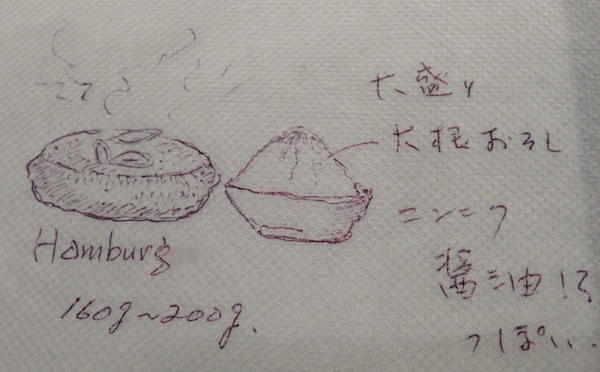 大盛り
大根おろし
Hamburg
160g~200g.
ニンニク
醤油!?
っぽい.